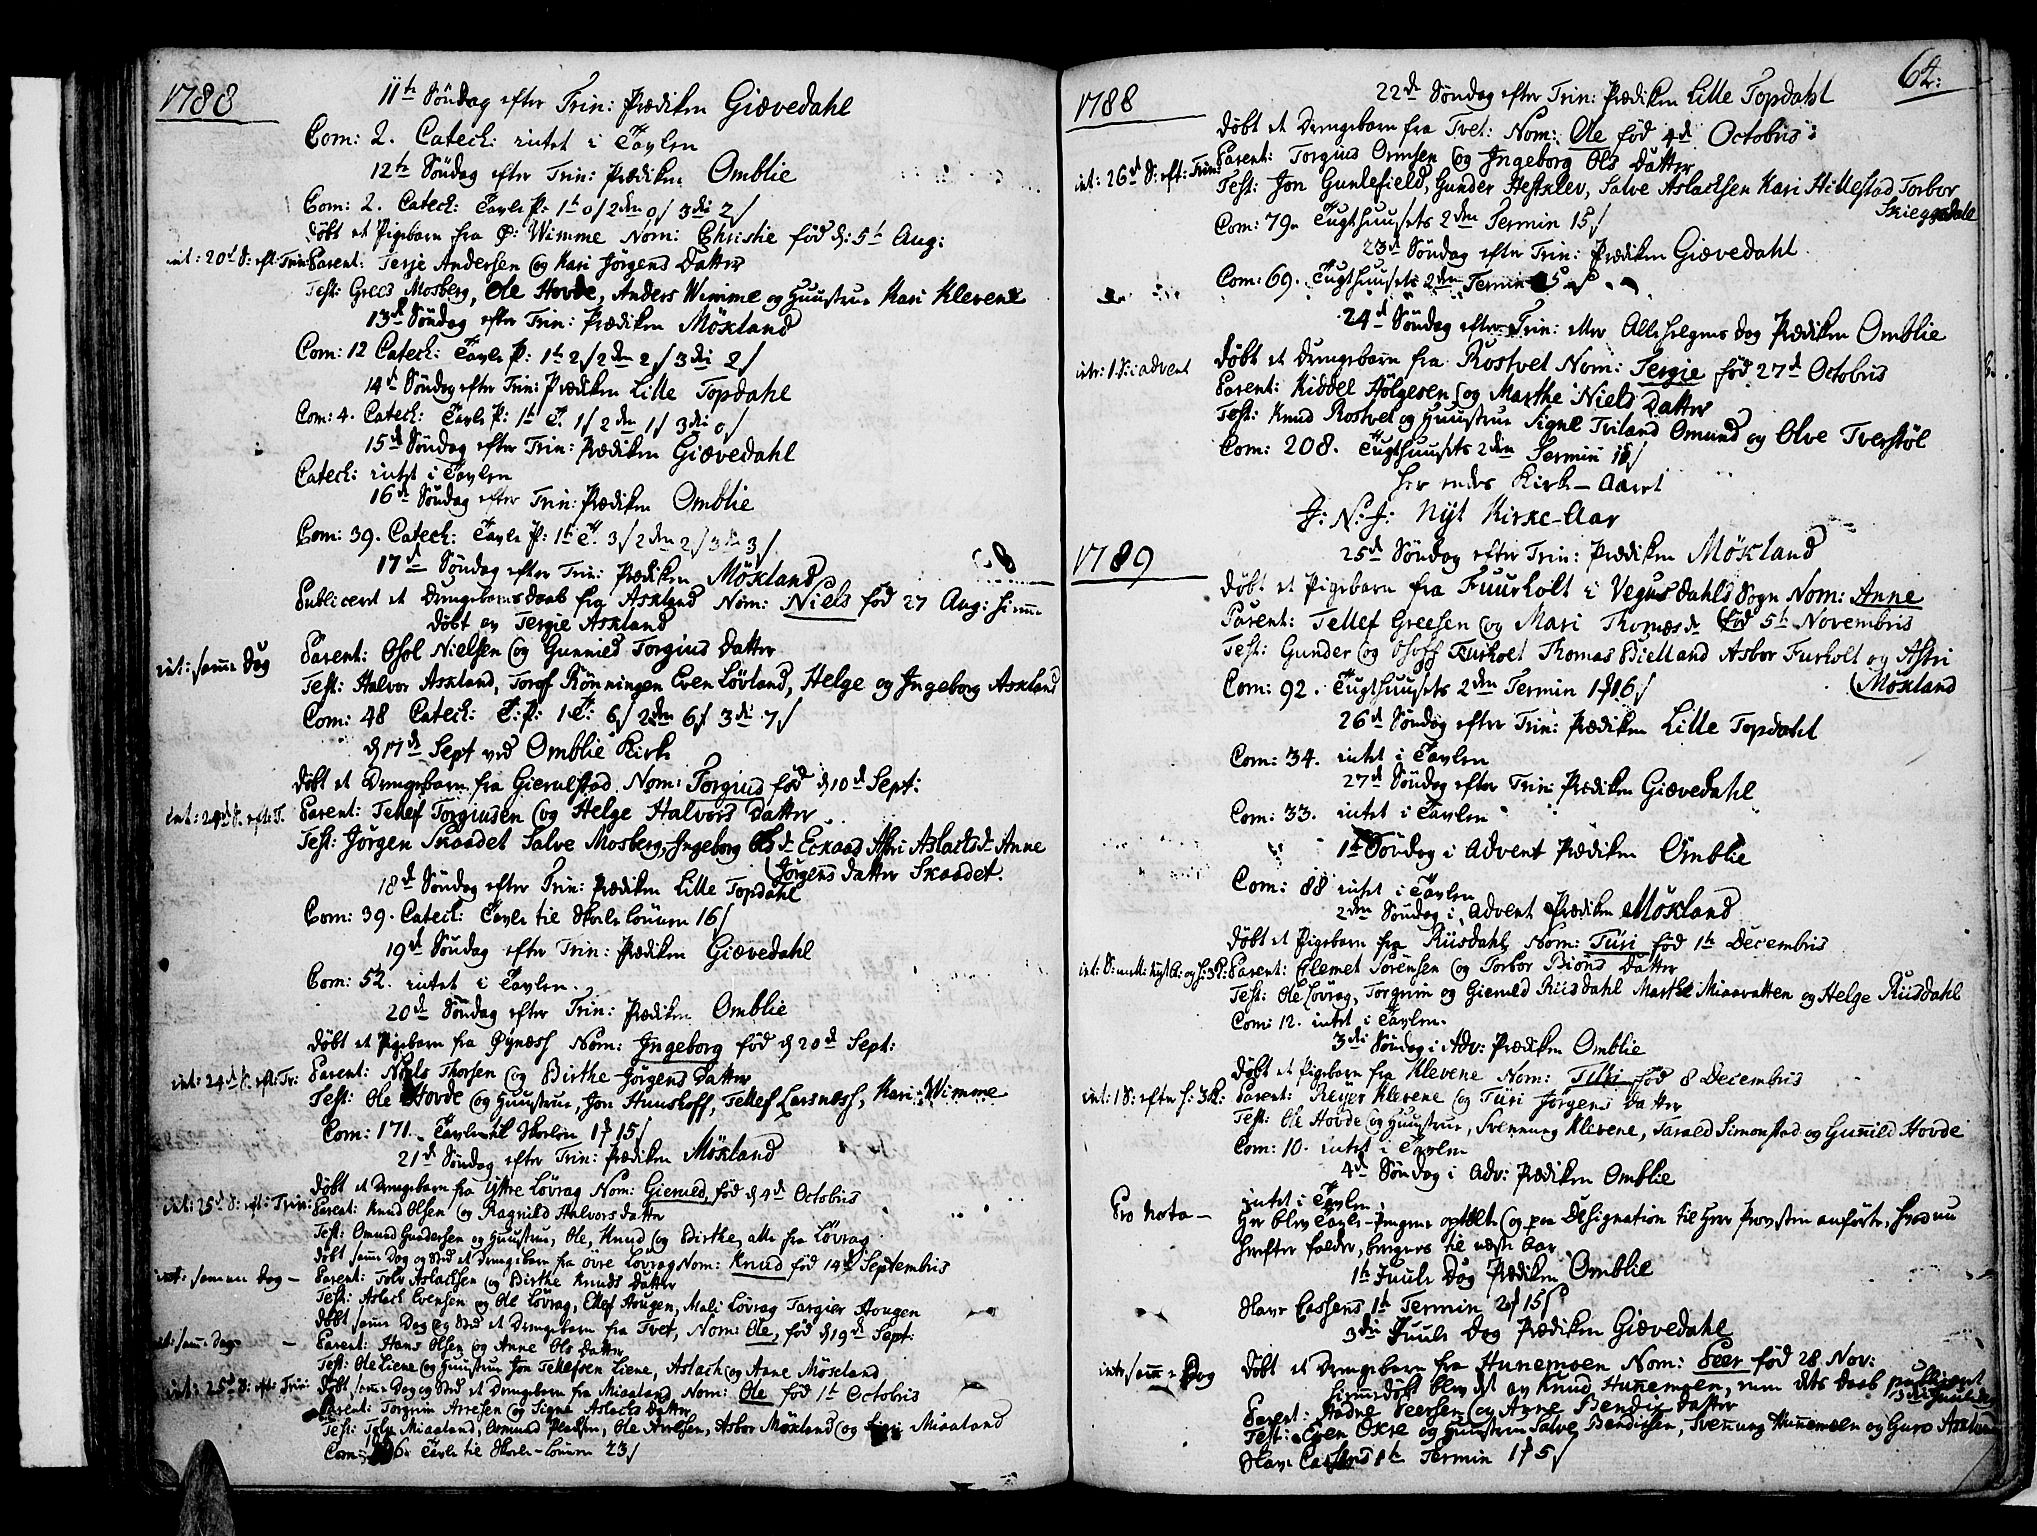 1788
11te Söndag efter Trin: Prædiken Giævedahl
Com: 2. Catech: intet i Tavlen
12te Söndag efter Trin: Prædiken Omblie
Com: 2. Catech: Tavle P: 1te 0/ 2den 0/ 3die 2/
döbt et Pigebarn fra Ø: Wimme Nom: Christie föd d: 5te Aug:
int: 20de S: eft: Trin: Parent: Terje Andersen og Kari Jörgens Datter
Test: Grees Mosberg, Ole Hovde, Anders Wimme og Huustrue Kari Klevene
13de Söndag efter Trin: Prædiken Möxland
Com: 12 Catech: Tavle P: 1te 2/ 2den 2/ 3die 2/
14de Söndag efter Trin: Prædiken Lille Topdahl
Com: 4. Catech: Tavle P: 1te T. 1/ 2den 1/ 3die 0/
15de Söndag efter Trin: Prædiken Giævedahl
Catech: intet i Tavlen
16de Söndag efter Trin: Prædiken Omblie
Com: 39. Catech: Tavle P: 1te T. 3/ 2den 2/ 3die 3/
17de Söndag efter Trin: Prædiken Möxland
Publiceret et Drengebarns daab fra Askland Nom: Niels föd 27 Aug: hieme
döbt av Tergie Askland
int: samme Dag Parent: Osol Nielsen og Gunnild Torgius Datter
Test: Halvor Askland, Torof Rönningen Even Lövland, Helge og Ingeborg Askland
Com: 48 Catech: T: P: 1 T: 6/ 2den 6/ 3die 7/
d 17de Sept ved Omblie Kirke
döbt et Drengebarn fra Gierulstad Nom: Torgius föd d 10de Sept:
int: 24de S. eft: T. Parent: Tellef Torgiusen og Helge Halvors Datter
Test: Jörgen Skaadet Salve Mosberg, Ingeborg Ols d. Eckaas Astri Aslachsd. Anne
Jörgens Datter Skaadet.
18de Söndag efter Trin: Prædiken Lille Topdahl
Com: 39. Catech: Tavle til Skole Cassen 16/
19de Söndag efter Trin: Prædiken Giævedahl
Com: 52. intet i Tavlen.
20de Söndag efter Trin: Prædiken Omblie
döbt et Pigebarn fra Øynæss Nom: Ingeborg föd d 20de Sept:
int: 24de S. eft: Tr: Parent: Niels Thorsen og Birthe Jörgens Datter
Test: Ole Hovde og Huustrue, Jon Huushoff, Tellef Larsnæss, Kari Wimme
Com: 171. Tavle til Skolen 15/
21de Söndag efter Trin: Prædiken Möxland
döbt et Drengebarn fra Yttre Lövrag Nom: Giermed, föd d 4de Octobris
int: 25de S: eft: Trin: Parent: Knud Olsen og Ragnild Halvors datter
Test: Omund Gundersen og Huustrue, Ole, Knud og Birthe, alle fra Lövrag
döbt samme Dag og Sted et Drengebarn fra övre Lövrag Nom: Knud föd 14de Septembris
int: samme Dag – Parent: Tolv Aslachsen og Birthe Knuds Datter
Test: Aslach Evensen og Ole Lövrag, Ellef Hougen, Mali Lövrag Targier Hougen
döbt samme Dag og Sted et Drengebarn fra Tvet, Nom: Ole, föd d 19de Sept:
int: samme Dag – Parent: Hans Olsen og Anne Ols Datter
Test: Ole Liene og Huustrue Jon Tellefsen Liene, Aslach og Anne Möxland
int: 25de S: eft: Trin: döbt samme Dag og Sted et Drengebarn fra Miaaland Nom: Ole föd 1te Octobris
Parent: Torgrim Arvesen og Signe Aslachs Datter
Test: Tolv Miaaland, Osmund, Ole Arvesen, Asbor Möxland og Miaaland
Com: Tavle til Skole-Cassen 23/
1788
64:
22de Söndag efter Trin: Prædiken Lille Topdahl
döbt et Drengebarn fra Tvet: Nom: Ole föd 4de Octobris
int: 26de S: eft: Trin: Parent: Torgius Ormsen og Ingeborg Ols Datter
Test: Jon Gunlefield, Gunder Hestklev, Salve Aslachsen Kari Hillestad Torbor
Skieggedahl
Com: 79. Tugthuusets 2den Termin 15/
23de Söndag efter Trin: Prædiken Giævedahl.
Com: 69. Tugthuusets 2den Termin
24de Söndag efter Trin: eller Alle helgens dag Prædiken Omblie
döbt et Drengebarn fra Rostvet Nom: Tergie föd 27de Octobris
int: 1 S: i advent Parent: Kiddel Hölgesen og Marthe Niels Datter
Test: Knud Rostvet og Huustrue Signe Triland Omund og Olve Tverstöl
Com: 208. Tugthuusets 2den Termin
her endes Kirke-Aaret
J: N: J: Nyt Kirke-Aar
1789
25de Söndag efter Trin: Prædiken Möxland
döbt et Pigebarn fra Fuurholt i Vegusdahls Sogn Nom: Anne
Parent: Tellef Greesen og Mari Thomæs d. föd 5te Novembris
Test: Gunder og Osoff Furholt Thomas Bielland Asbor Furholt og Astri
Möxland
Com: 92. Tugthuusets 2den Termin 16/
26de Söndag efter Trin: Prædiken Lille Topdahl
Com: 34. intet i Tavlen
27de Söndag efter Trin: Prædiken Giævedahl
Com: 33. intet i Tavlen
1te Söndag i Advent Prædiken Omblie
Com: 88 intet i Tavlen
2den Söndag i Advent Prædiken Möxland
döbt et Pigebarn fra Riisdahl, Nom: Turi föd 1te Decembris
Parent: Clemet Sörensen og Torbor Biöns Datter
Test: Ole Lövrag, Torgrim og Giermed Riisdahl Marthe Miaavatten og Helge Riisdahl
Com: 12. intet i Tavlen.
3die Söndag i Adv: Prædiken Omblie
döbt et Pigebarn fra Klevene Nom: föd 8 Decembris
int: 1 S: efter h: 3K: Parent: Reyer Klevene og Turi Jörgens Datter
Test: Ole Hovde og Huustrue, Svennung Klevene, Tarald Simonstad og Gunnild Hovde
Com: 10. intet i Tavlen
4de Söndag i Adv: Prædiken Omblie
intet i Tavlen
Pro Nota – Her blev Tavle-Pengene optælt og paa Designation til Herr Provsten anförte, hvad nu
herefter falder, beregnes til næste Aar
1te Juule Dag Prædiken Omblie
Have Cassens 1te Termin 15/
3die Juule Dag Prædiken Giævedahl
int: samme Dag döbt et Drengebarn fra Hunemoen Nom: Peer föd 28 Nov:
hiemedöbt blev det av Knud Hunemoen, men dets daab publiceret
3die Juuledag
Parent: Aadne Peersen og Anne Bendix datter
Test: Even Oxe og Huustrue Salve Bendixsen, Svennung Hunemoen og Guro Askland
Have Cassens 1te Termin 5/